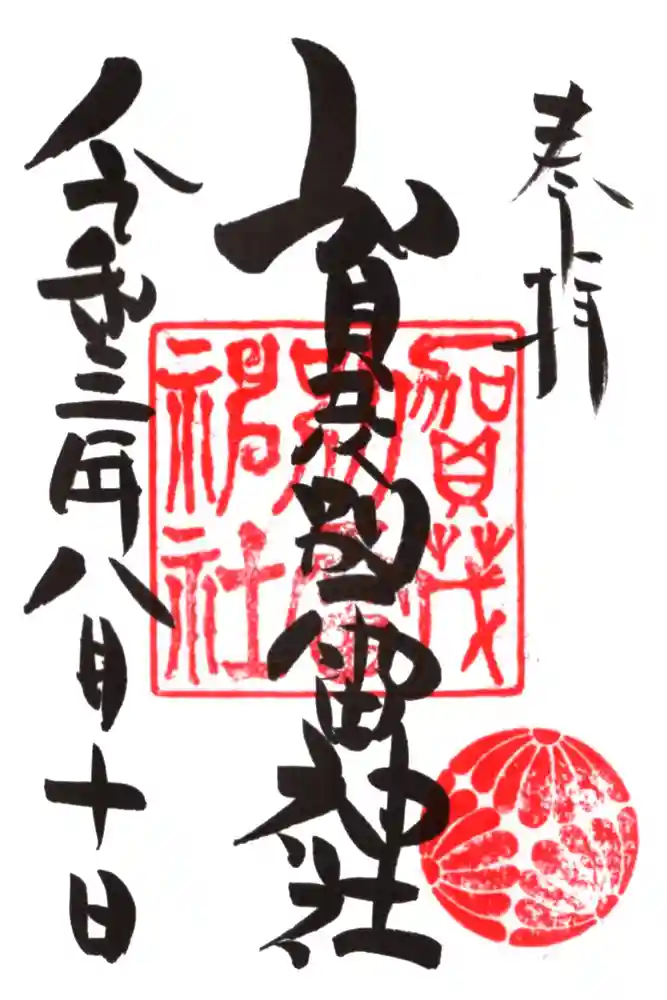 奉拝
賀茂別雷神社
令和三年八月十日
賀茂
別雷
神社